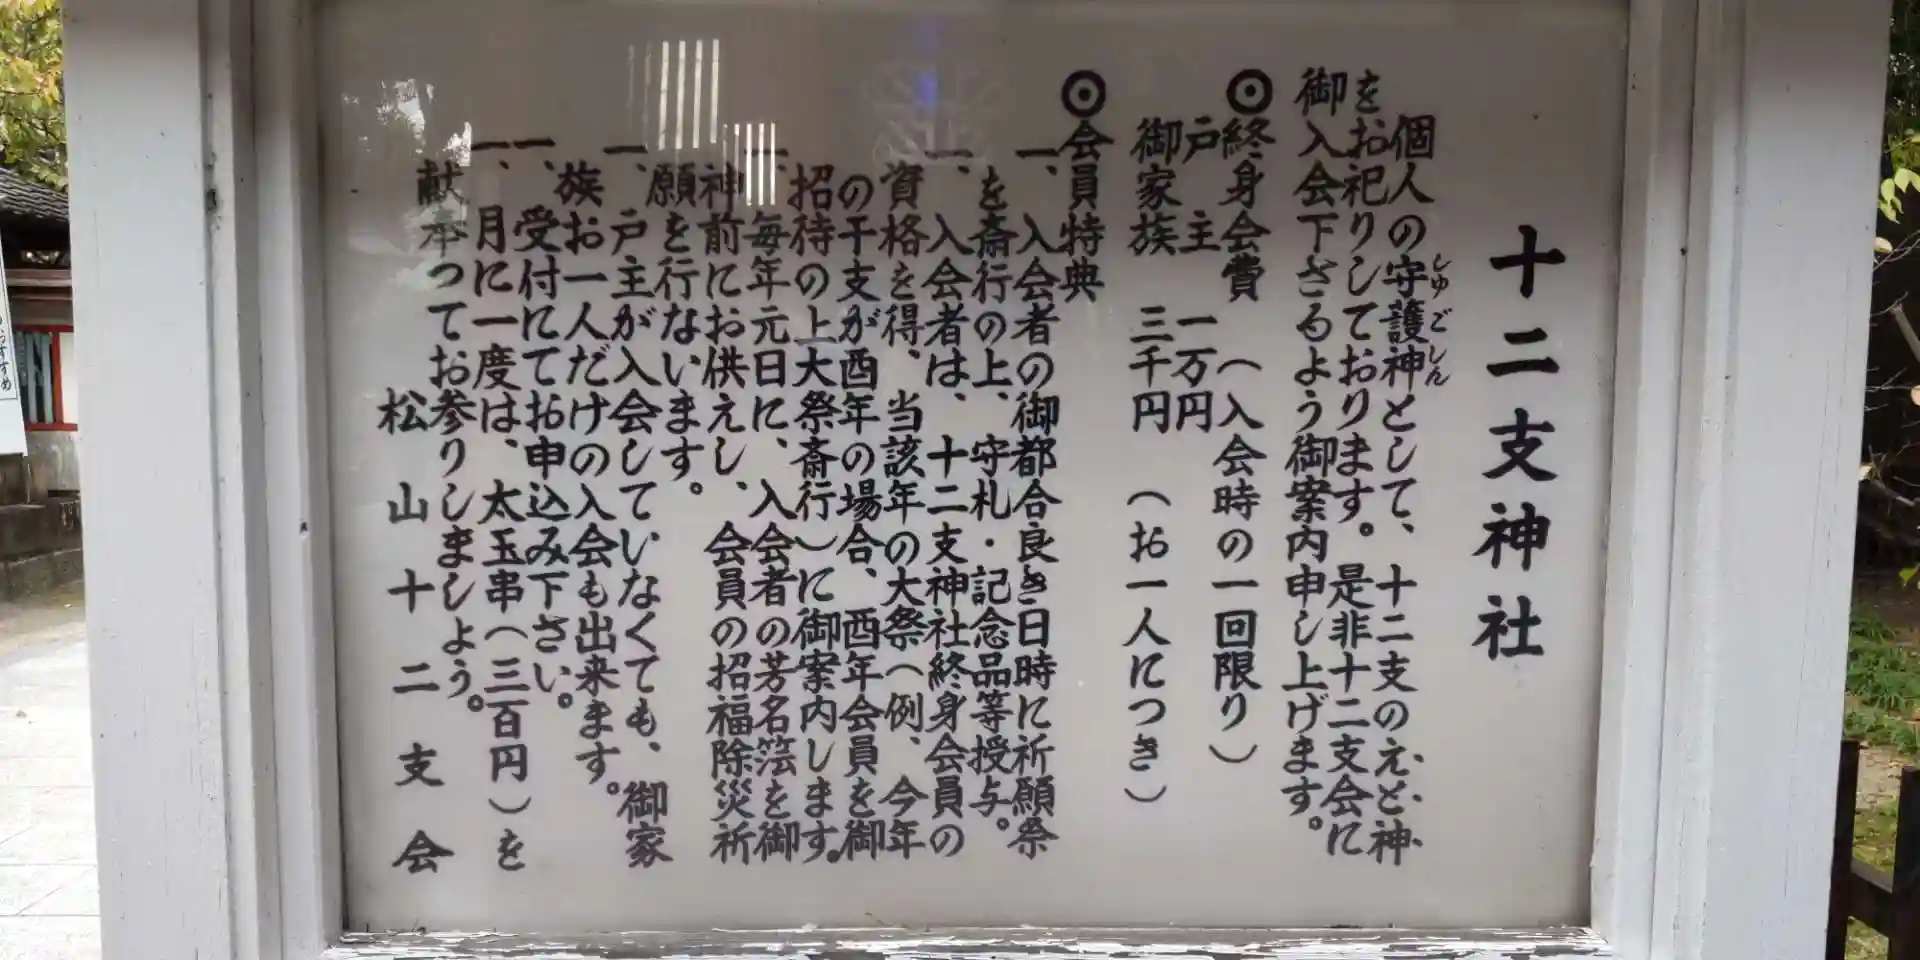 十二支神社
個人の守護神として、十二支のえと神
しゅごしん
をお祀りしております。是非十二支会に
御入会下さるよう御案内申し上げます。
◉終身会費（入会時の一回限り）
戸主 一万円
御家族 三千円（お一人につき）
◉会員特典
一、入会者の御都合良き日時に祈願祭
を斎行の上、守札・記念品等授与。
一、入会者は、十二支神社終身会員の
資格を得、当該年の大祭（例、今年
の干支が酉年の場合、酉年会員を御
招待の上大祭斎行）に御案内します。
一、毎年元日に、入会者の芳名簿を御
神前にお供えし、会員の招福除災祈
願を行ないます。
一、戸主が入会していなくても、御家
族お一人だけの入会も出来ます。
一、受付にてお申込み下さい。
一、月に一度は、太玉串（三百円）を
献奉つてお参りしましょう。
松山十二支会